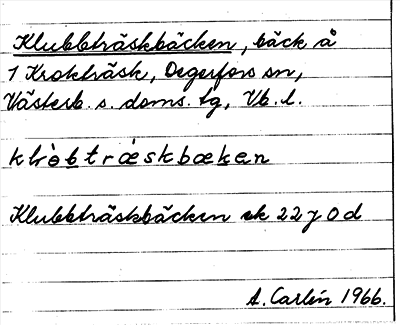 Klubbträskbäcken, bäck å
1 Krokträsk, Degerfors sn,
Västerb. s. doms. tg, Vb. l.
Klubbträskbäcken ek 22 J 0 d
A. Carlén 1966.